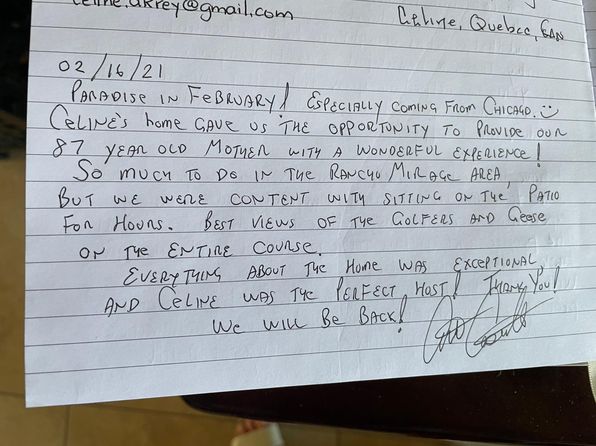 Celine, Quebec, CAN
02/16/21
PARADISE IN FEBRUARY! ESPECIALLY COMING FROM CHICAGO.
CELINE'S HOME GAVE US THE OPPORTUNITY TO PROVIDE OUR
87 YEAR OLD MOTHER WITH A WONDERFUL EXPERIENCE!
SO MUCH TO DO IN THE RANCHO MIRAGE AREA,
BUT WE WERE CONTENT WITH SITTING ON THE PATIO
FOR HOURS. BEST VIEWS OF THE GOLFERS AND GEESE
ON THE ENTIRE COURSE.
EVERYTHING ABOUT THE HOME WAS EXCEPTIONAL,
AND CELINE WAS THE PERFECT HOST! THANK YOU!
WE WILL BE BACK!